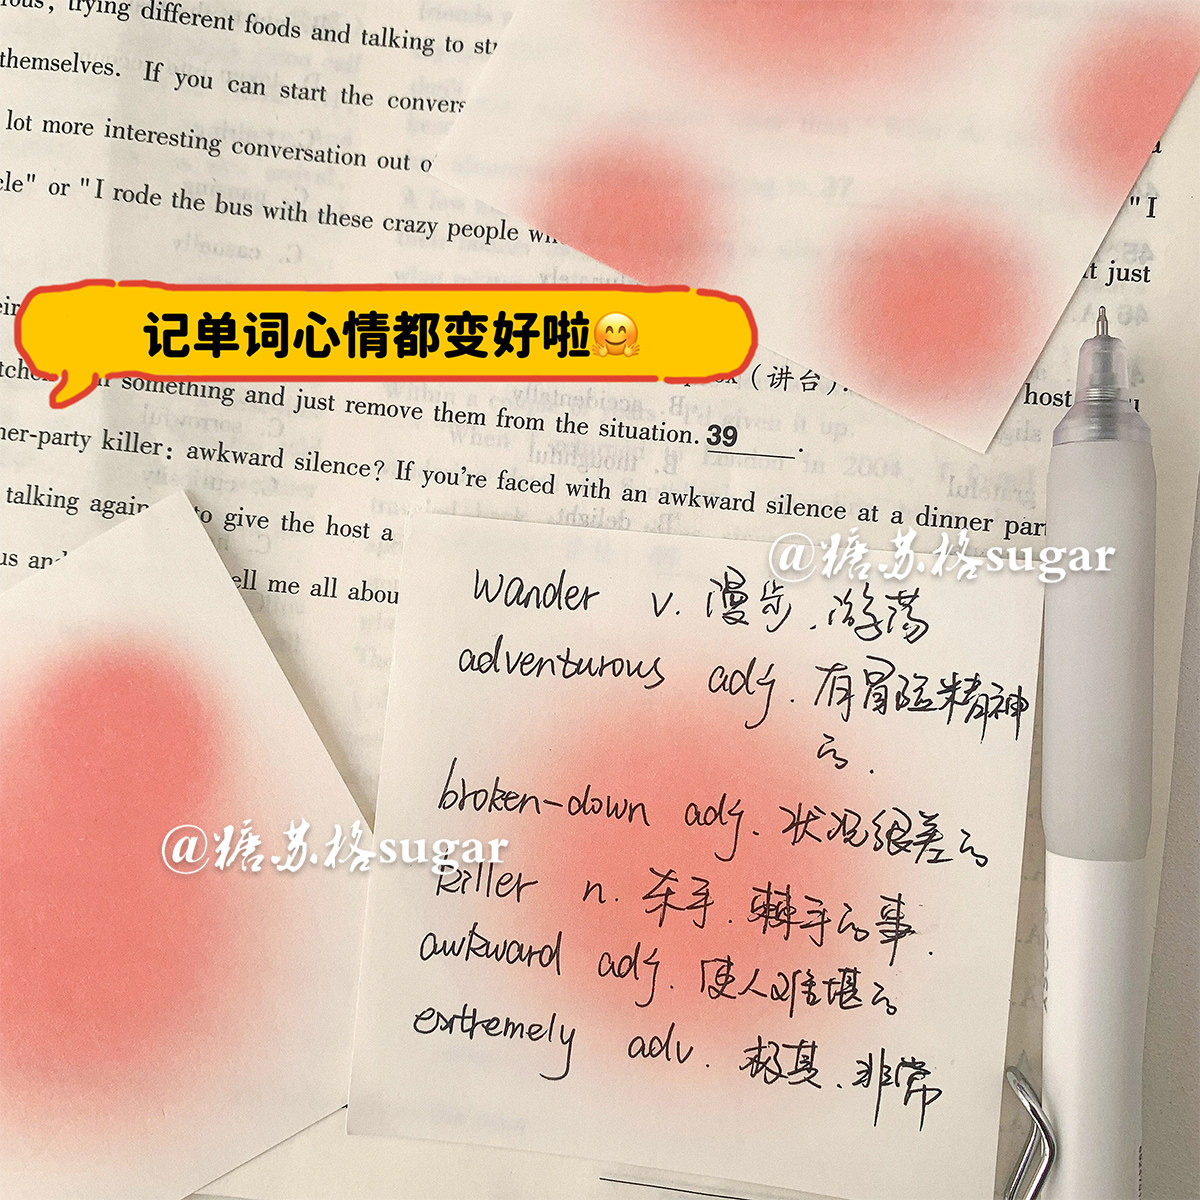 trying different foods and talking to
themselves. If you can start the
lot more interesting conversation out
or "I rode the bus with these crazy people
"I
just
记单词心情都变好啦🤗
(讲台).
host
something and just remove them from the situation. 39 ______.
killer: awkward silence? If you're faced with an awkward silence at a dinner
talking to give the host a
tell me all
@糖苏格sugar
wander v. 漫步, 游荡
adventurous adj. 有冒险精神
的.
broken-down adj. 状况很差的
@糖苏格sugar
killer n. 杀手. 棘手的事.
awkward adj. 使人难堪的
extremely adv. 极其. 非常